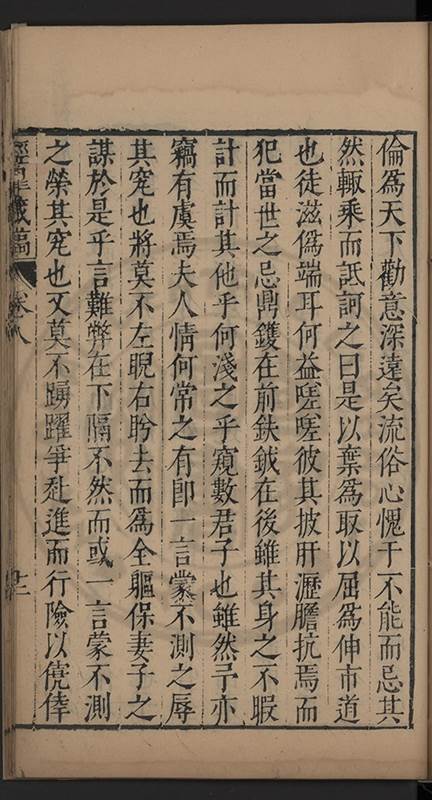 倫爲天下勸意深遠矣流俗心愧于不能而忌其
然輙乘而詆訶之曰是以棄爲取以屈爲伸市道
也徒滋僞端耳何益嗟嗟彼其披肝瀝膽抗焉而
犯當世之忌鼎鑊在前鈇鉞在後雖其身之不暇
計而計其他乎何淺之乎窺數君子也雖然予亦
竊有虞焉夫人情何常之有卽一言蒙不測之辱
其究也將莫不左睨右盻去而爲全軀保妻子之
謀於是乎言難弊在下隔不然而或一言蒙不測
之榮其究也又莫不踴躍爭趨進而行險以僥倖
卷八